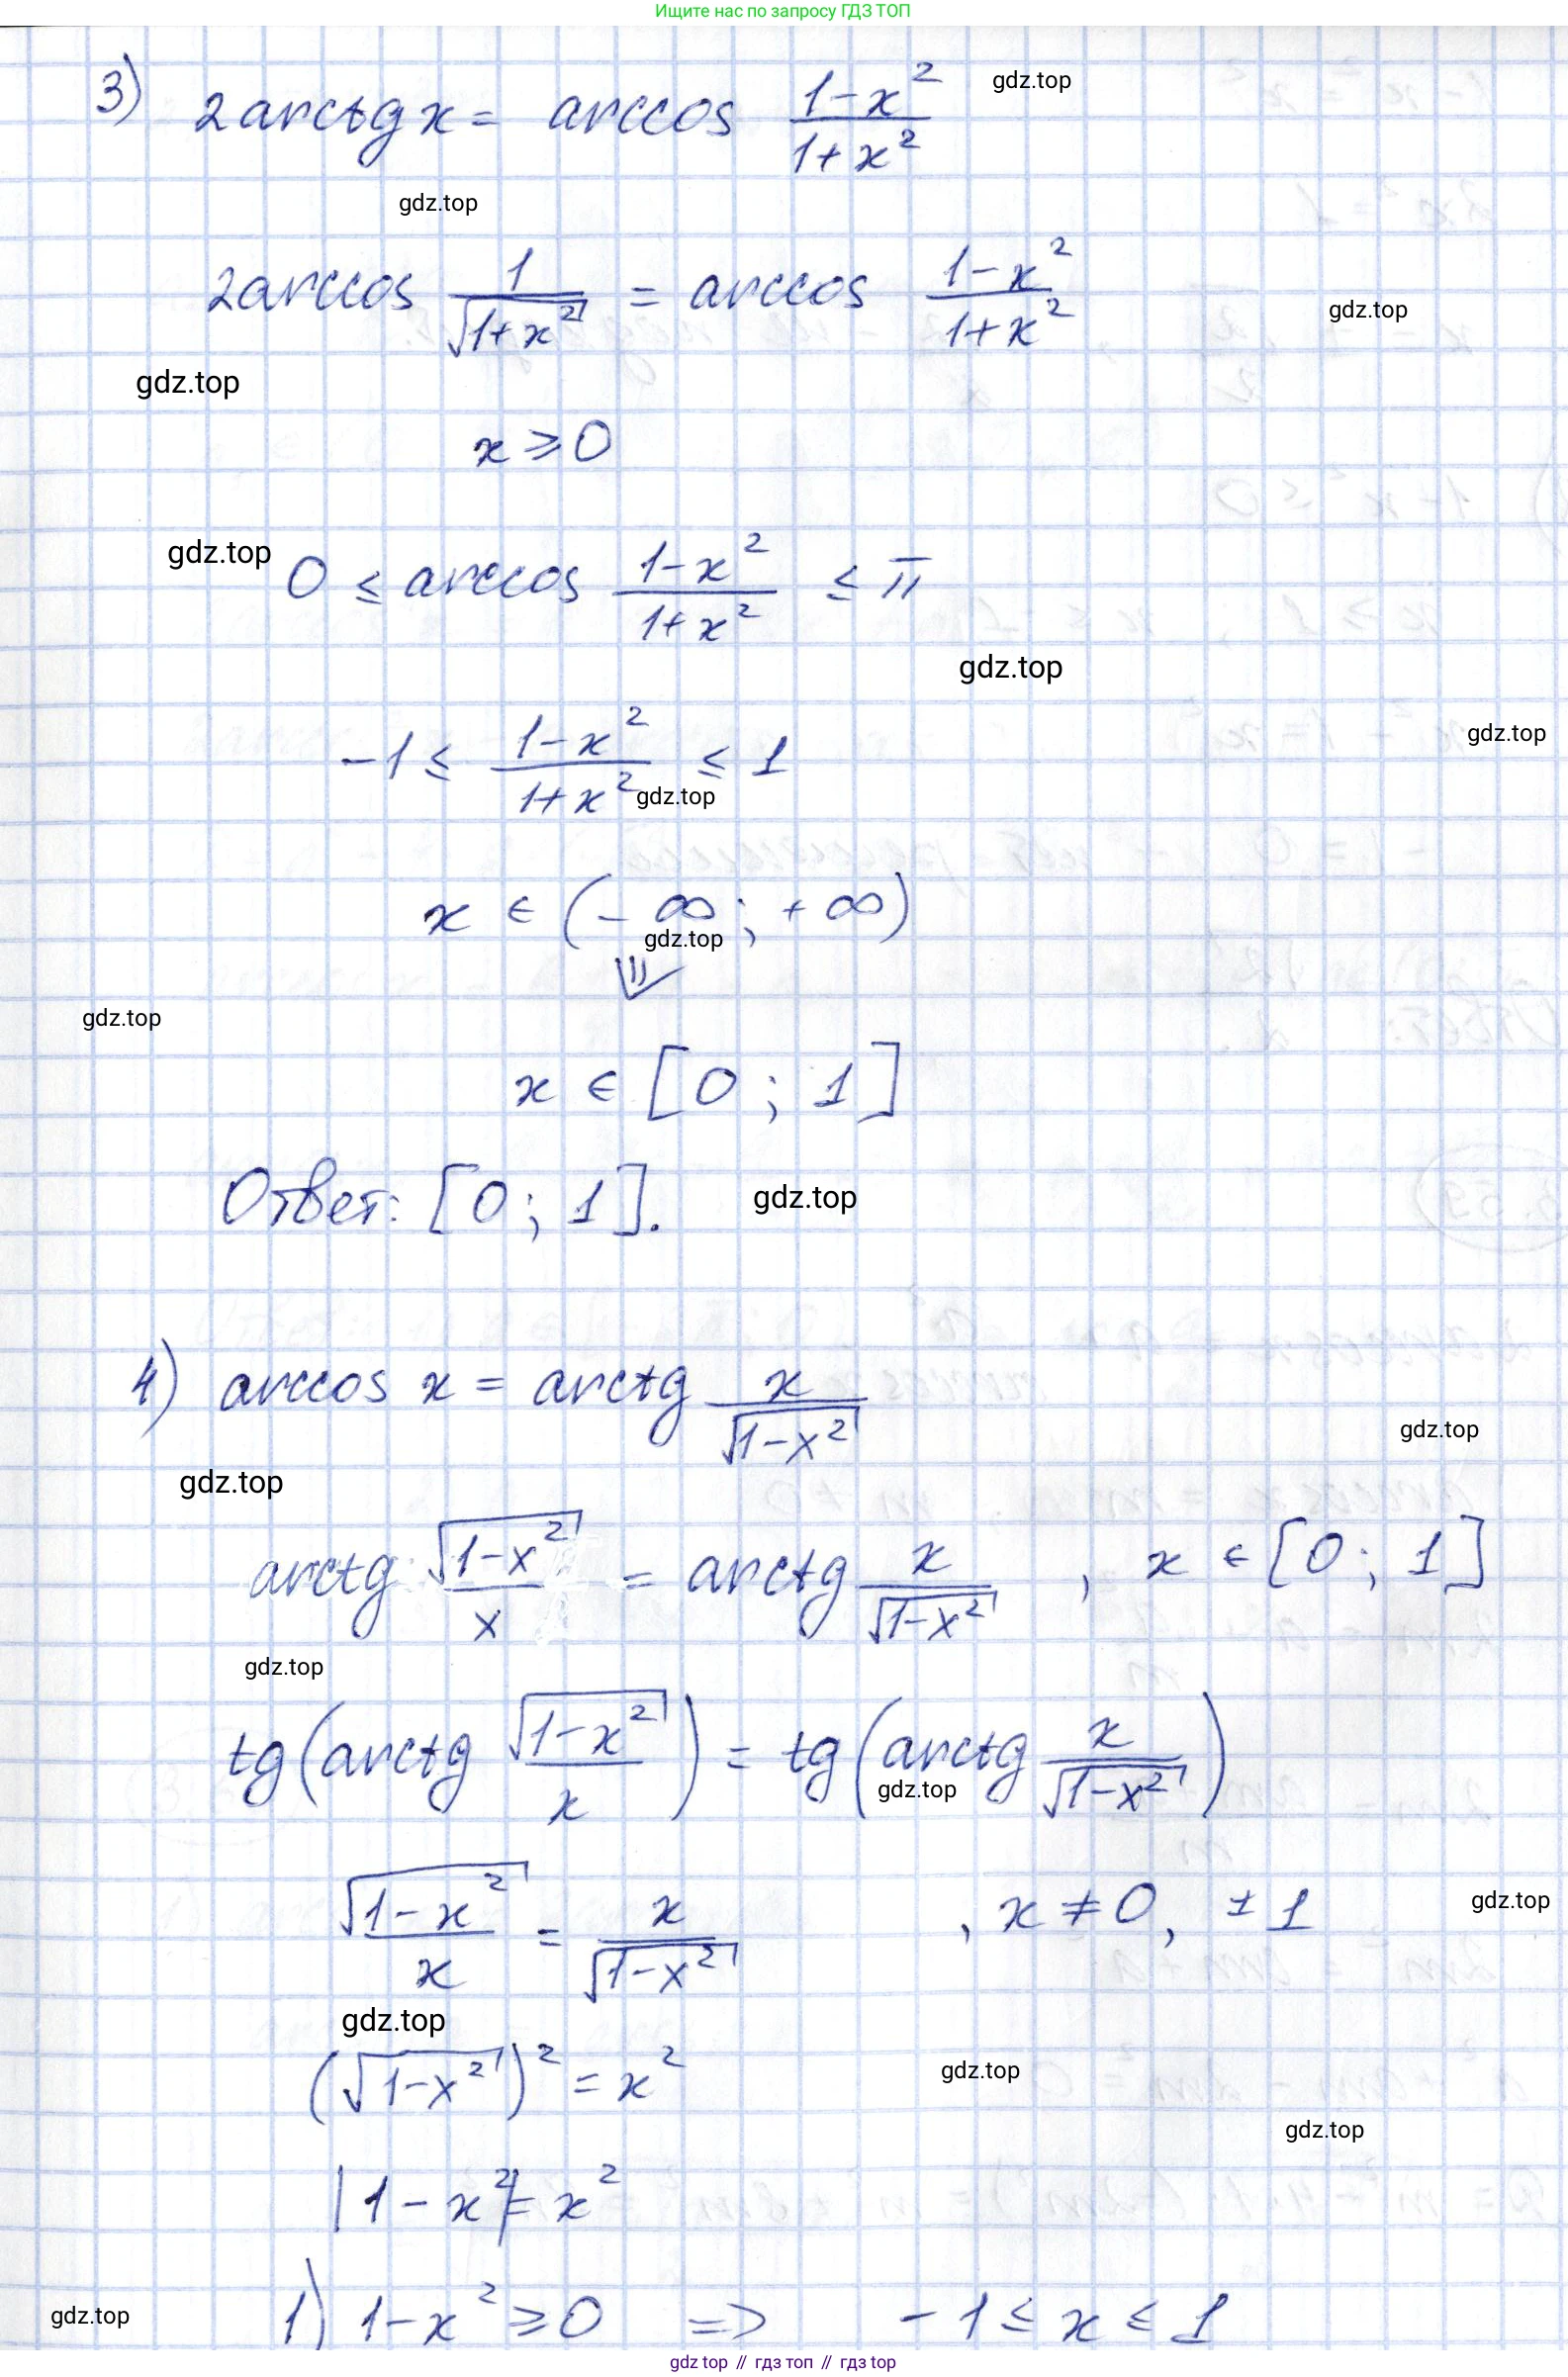 Ищите нас по запросу ГДЗ ТОП
3) 2arctg x = arccos (1-x²)/(1+x²)
gdz.top
gdz.top
2arccos 1/√(1+x²) = arccos (1-x²)/(1+x²)
gdz.top
gdz.top
x ⩾ 0
gdz.top
0 ≤ arccos (1-x²)/(1+x²) ≤ π
gdz.top
-1 ≤ (1-x²)/(1+x²) ≤ 1
gdz.top
gdz.top
x ∈ (-∞; +∞)
gdz.top
⇓
gdz.top
x ∈ [0; 1]
Ответ: [0; 1].
gdz.top
4) arccos x = arctg x/√(1-x²)
gdz.top
gdz.top
arctg √(1-x²)/x = arctg x/√(1-x²) , x ∈ [0; 1]
gdz.top
tg(arctg √(1-x²)/x) = tg(arctg x/√(1-x²))
gdz.top
√(1-x²)/x = x/√(1-x²) , x ≠ 0, ±1
gdz.top
gdz.top
(√(1-x²))² = x²
gdz.top
gdz.top
|1-x²| = x²
1) 1-x² ⩾ 0 => -1 ≤ x ≤ 1
gdz.top
gdz top // гдз топ // гдз top